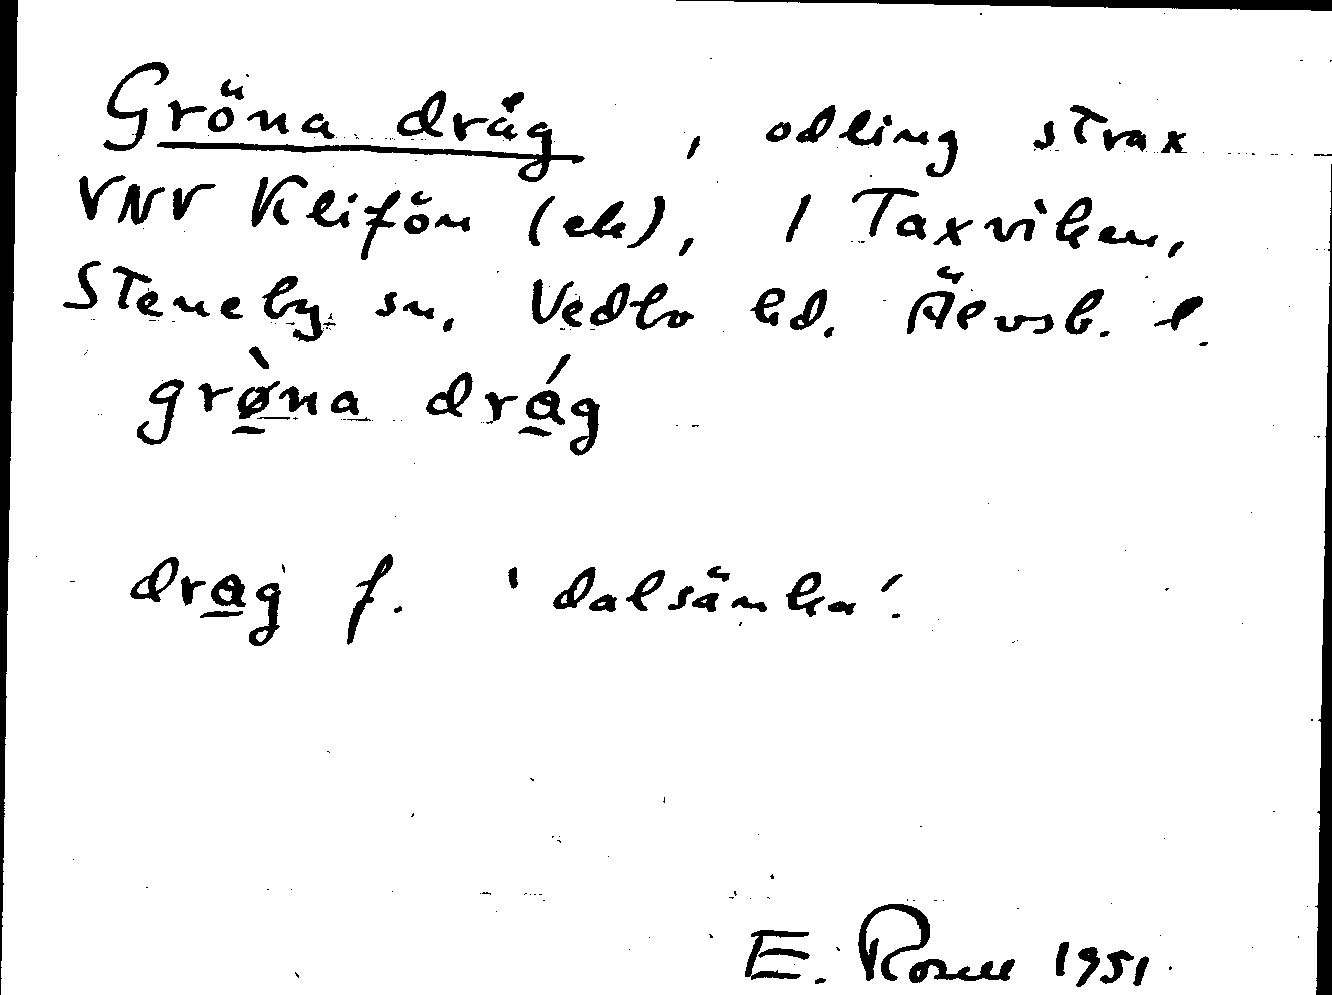 Gröna dråg, odling strax
VNV Klifön (ek), 1 Taxviken,
Steneby sn, Vedbo hd. Älvsb. l.
grø̀na drág
drag f. 'dalsänka'.
E. Rosell 1951